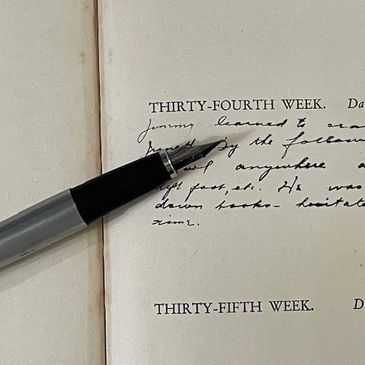 THIRTY-FOURTH WEEK. Da
Jimmy learned to cra
By the follow
anywhere a
foot, etc. He was
down books- hesitate
time.
THIRTY-FIFTH WEEK. D